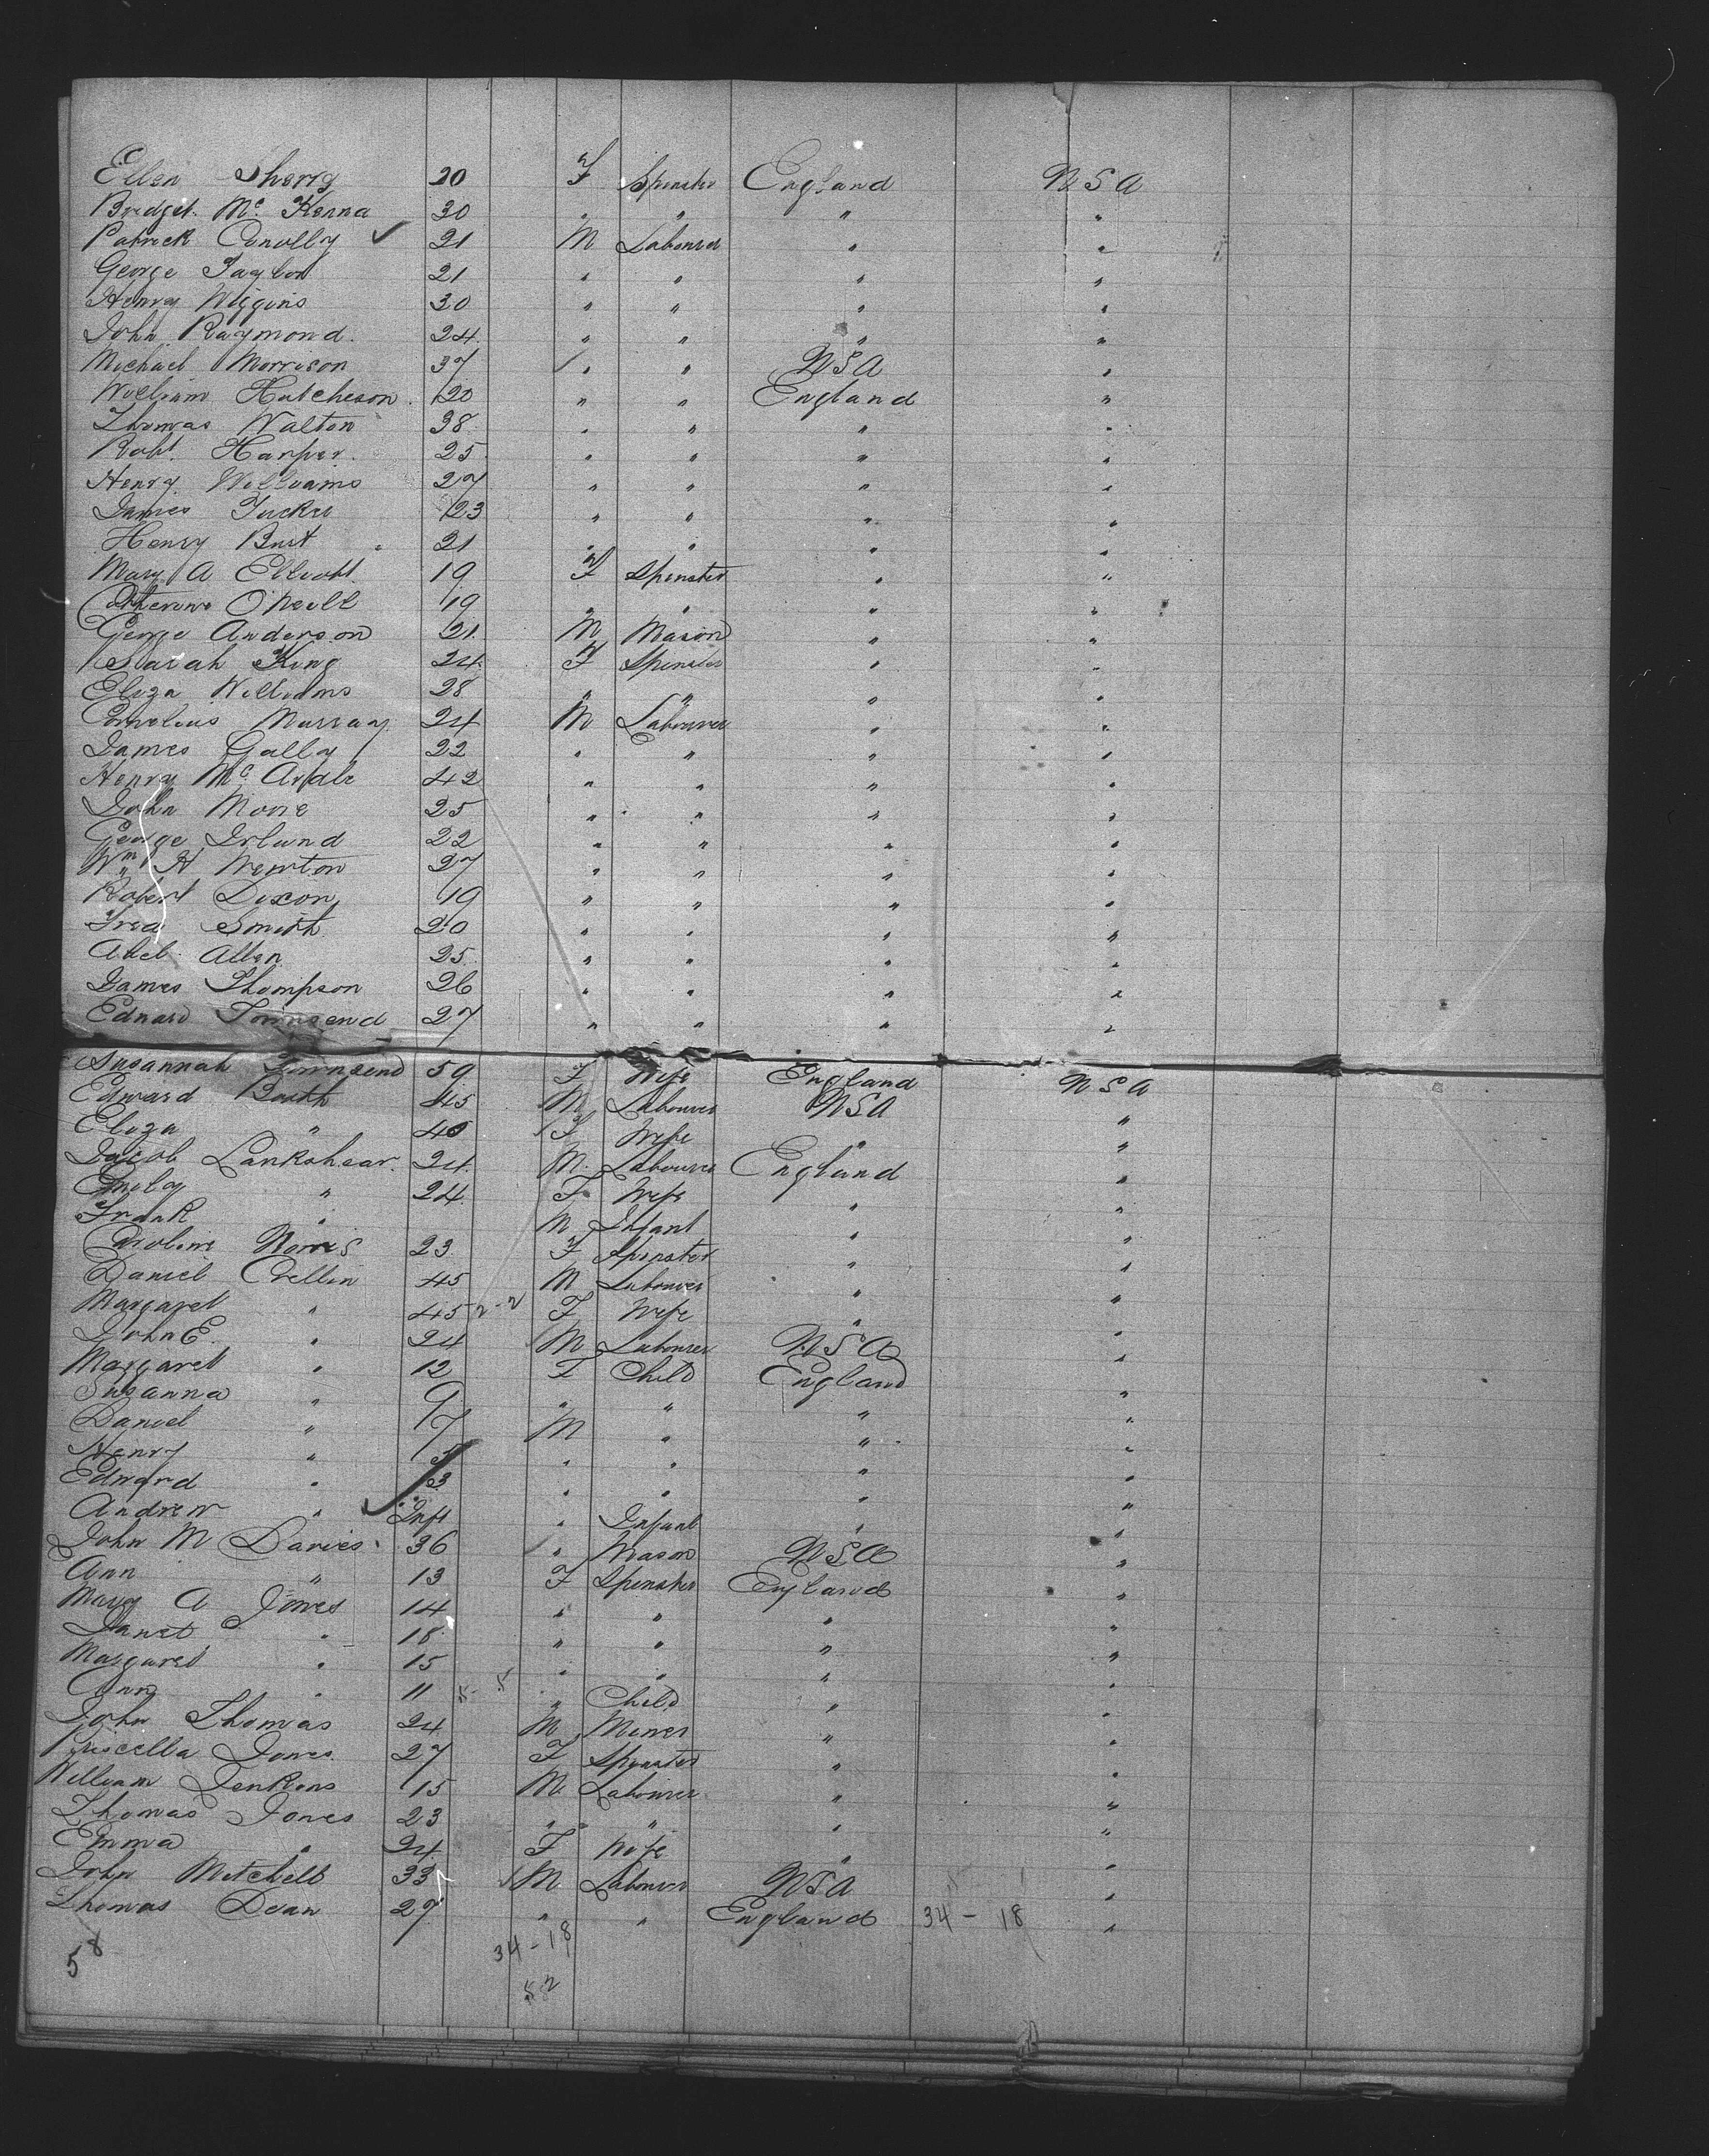 Ellen Sherry 20 F Spinster England U S A
Bridget Mc Kenna 30 " " " "
Patrick Conolly ✓ 21 M Labourer " "
George Taylor 21 " " " "
Henry Wiggins 30 " " " "
John Raymond 24 " " " "
Michael Morrison 37 / " " U S A "
William Hutcheson 20 " " England "
Thomas Walton 38 " " " "
Robt. Harper 25 " " " "
Henry Williams 27 " " " "
James Tucker 23 " " " "
Henry Burt 21 " " " "
Mary A Elliott 19 F Spinster " "
Catherine O'Neill 19 " " " "
George Anderson 21 M Mason " "
Sarah King 24 F Spinster " "
Eliza Williams 28 " " " "
Cornelius Murray 24 M Labourer " "
James Gally 22 " " " "
Henry Mc Ardle 42 " " " "
John Moore 25 " " " "
George Irland 22 " " " "
Wm H Newton 27 " " " "
Robert Dixon 19 " " " "
Fred Smith 20 " " " "
Abel Allen 25 " " " "
James Thompson 26 " " " "
Edward Townsend 27 " " " "
Susannah Townsend 59 F Wife England U S A
Edward Booth 45 M Labourer U S A "
Eliza " 40 F Wife " "
Jacob Lankshear 24 M Labourer England "
Emily " 24 F Wife " "
Frank " M Infant " "
Caroline Norris 23 F Spinster " "
Daniel Crellin 45 M Labourer " "
Margaret " 45 2-2 F Wife " "
John E. " 24 M Labourer U S A "
Margaret " 12 F Child England "
Susanna " 9 " " " "
Daniel " 7 M " " "
Henry " 5 " " " "
Edward " 3 " " " "
Andrew " ✓ Inft " Infant " "
John M Davies 36 / " Mason U S A "
Ann " 13 F Spinster England "
Mary A Jones 14 " " " "
Janet " 18 " " " "
Margaret " 15 " " " "
Ann " 11 5-5 " Child " "
John Thomas 24 M Miner " "
Priscilla Jones 27 F Spinster " "
William Jenkins 15 M Labourer " "
Thomas Jones 23 " " " "
Emma " 24 F Wife " "
John Mitchell 33 M Labourer U S A "
Thomas Dean 27 " " England 34 - 18 "
58 34-18
52